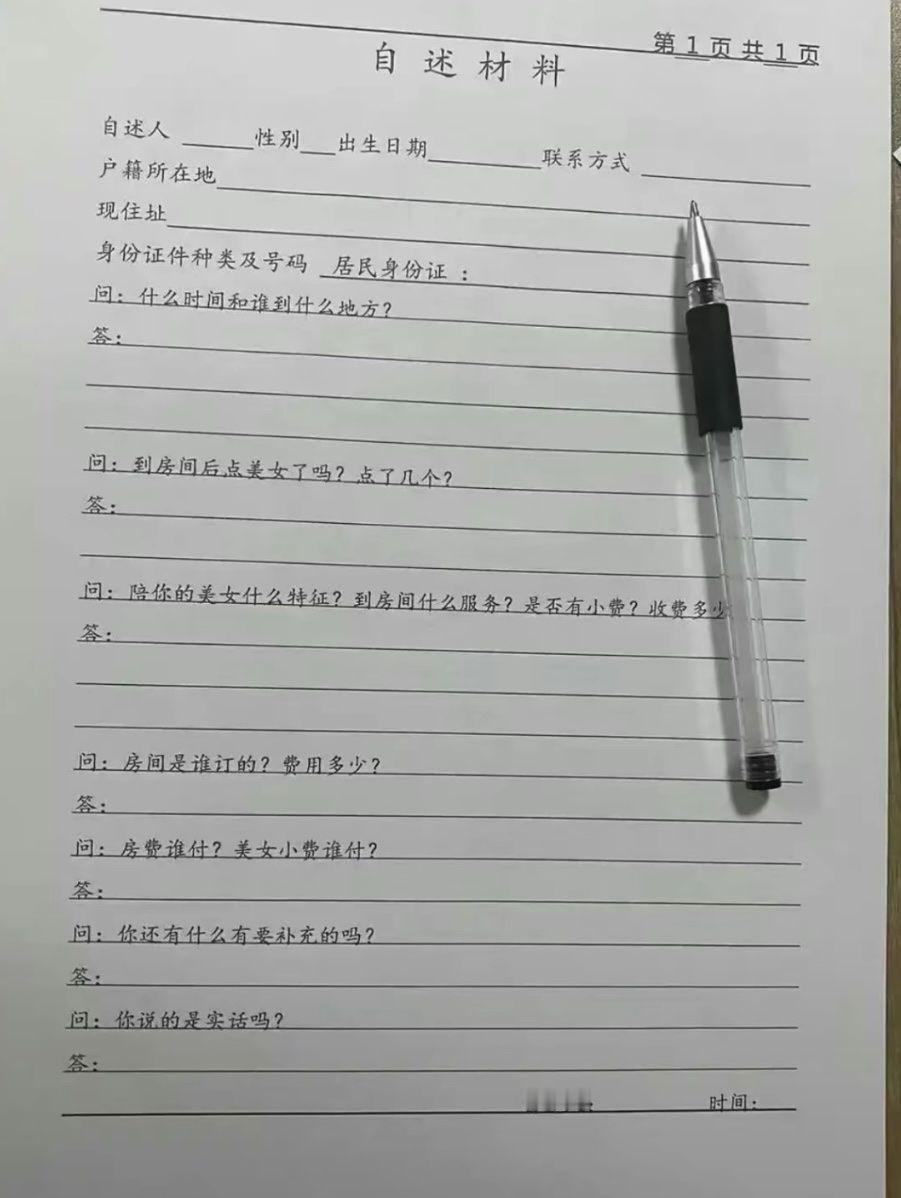 第 1 页 共 1 页
自 述 材 料
自述人 ______性别___出生日期_________联系方式 ______________
户籍所在地
现住址
身份证件种类及号码 居民身份证 :
问: 什么时间和谁到什么地方?
答:
问: 到房间后点美女了吗? 点了几个?
答:
问: 陪你的美女什么特征? 到房间什么服务? 是否有小费? 收费多少
答:
问: 房间是谁订的? 费用多少?
答:
问: 房费谁付? 美女小费谁付?
答:
问: 你还有什么有要补充的吗?
答:
问: 你说的是实话吗?
答:
时间: